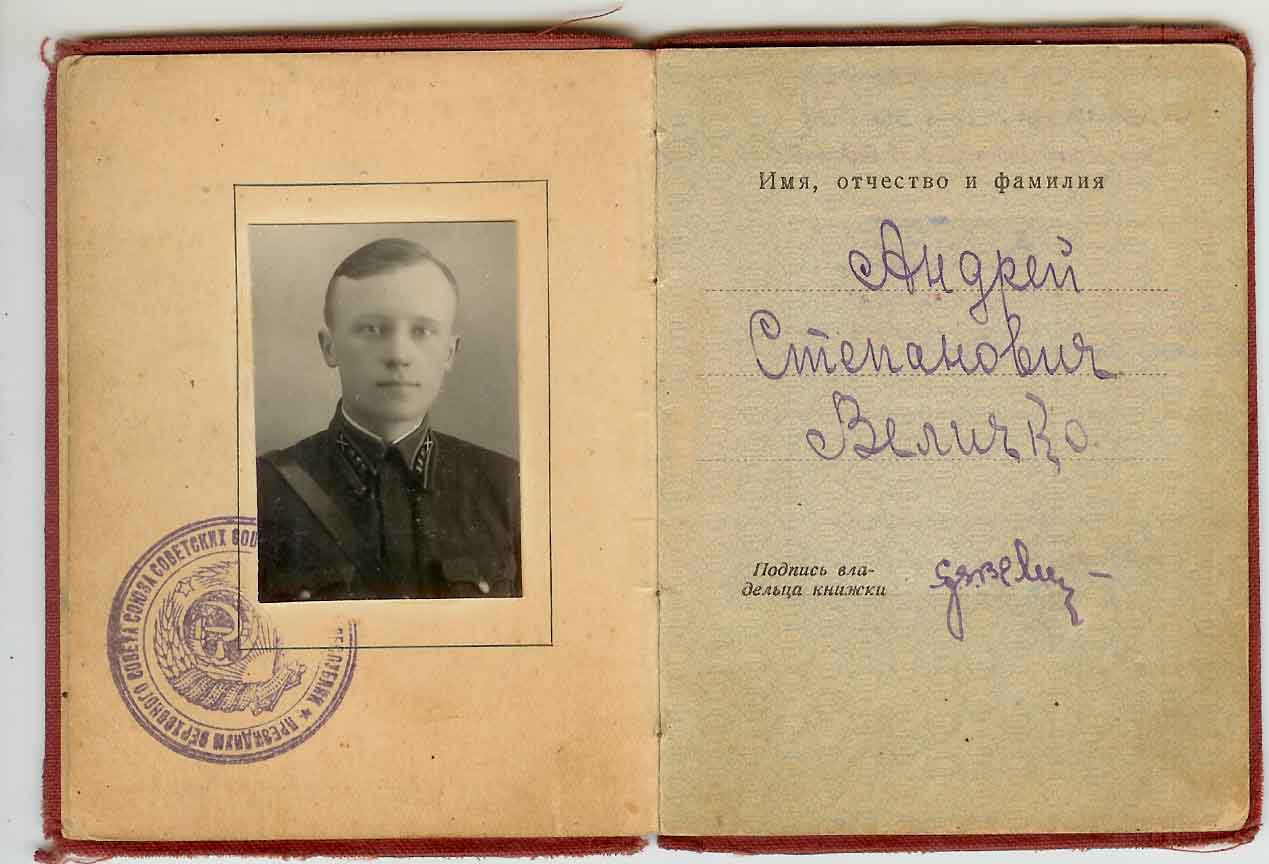 ПРЕЗИДИУМ ВЕРХОВНОГО СОВЕТА СОЮЗА СОВЕТСКИХ
Имя, отчество и фамилия
Андрей
Степанович
Величко
Подпись вла-
дельца книжки